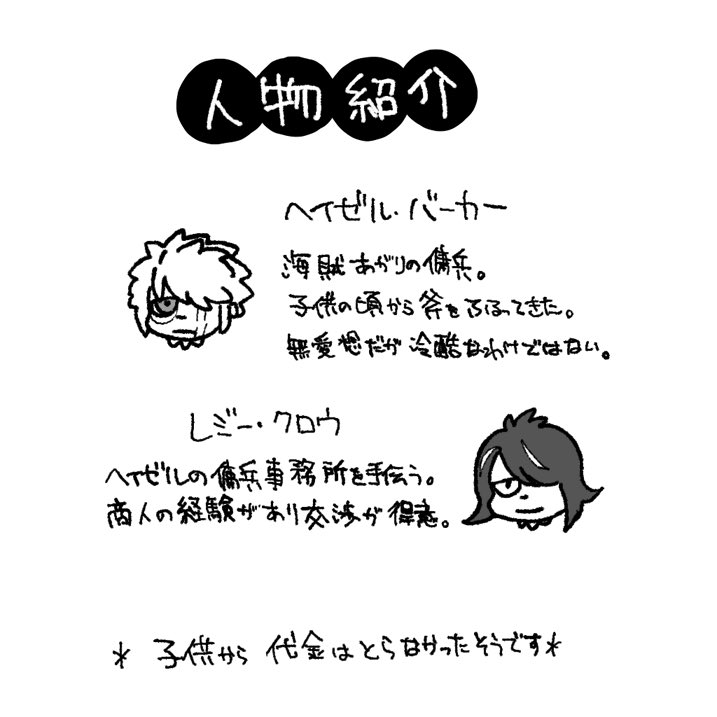 人物紹介
ヘイゼル・バーカー
海賊あがりの傭兵。
子供の頃から斧をふるってきた。
無愛想だが冷酷なわけではない。
レジー・クロウ
ヘイゼルの傭兵事務所を手伝う。
商人の経験があり交渉が得意。
* 子供から代金はとらなかったそうです*